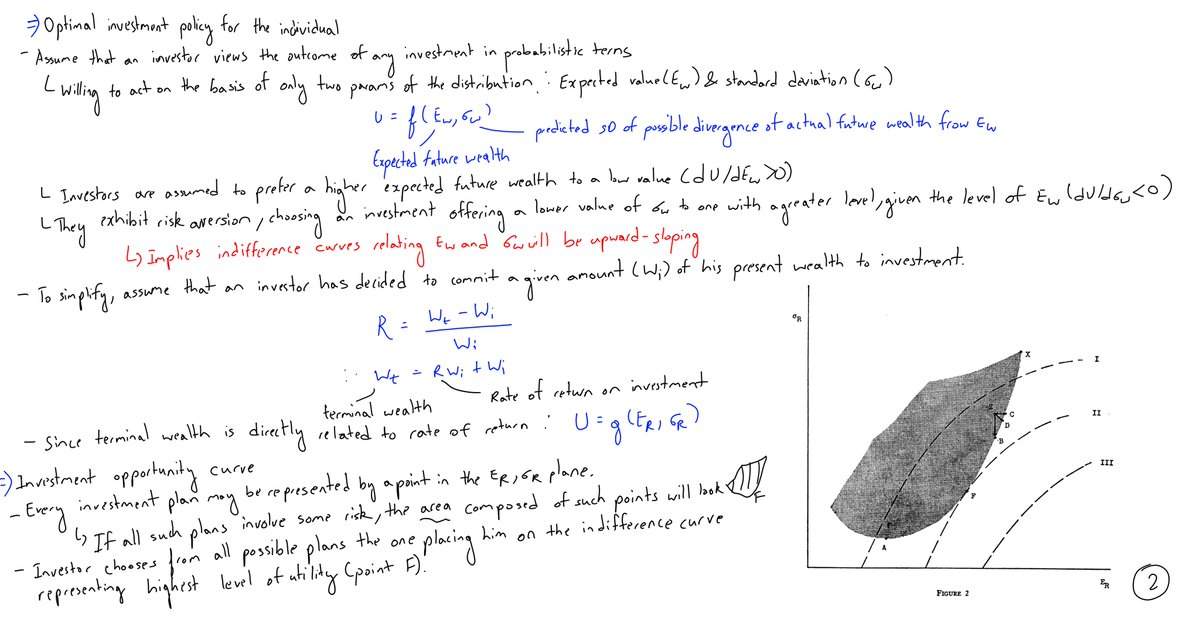 ⇒ Optimal investment policy for the individual
- Assume that an investor views the outcome of any investment in probabilistic terms
└ Willing to act on the basis of only two params of the distribution ∴ Expected value (E_w) & standard deviation (σ_w)
U = f(E_w, σ_w)
predicted SD of possible divergence of actual future wealth from E_w
Expected future wealth
└ Investors are assumed to prefer a higher expected future wealth to a low value (dU/dE_w > 0)
└ They exhibit risk aversion, choosing an investment offering a lower value of σ_w to one with a greater level, given the level of E_w (dU/dσ_w < 0)
↳ Implies indifference curves relating E_w and σ_w will be upward-sloping
- To simplify, assume that an investor has decided to commit a given amount (W_i) of his present wealth to investment.
R = (W_t - W_i) / W_i
∴ W_t = RW_i + W_i
Rate of return on investment
terminal wealth
- Since terminal wealth is directly related to rate of return: U = g(E_R, σ_R)
⇒ Investment opportunity curve
- Every investment plan may be represented by a point in the E_R, σ_R plane.
↳ If all such plans involve some risk, the area composed of such points will look
F
- Investor chooses from all possible plans the one placing him on the indifference curve
representing highest level of utility (point F).
σ_R
X
I
Z
C
D
B
II
III
F
A
E_R
FIGURE 2
2